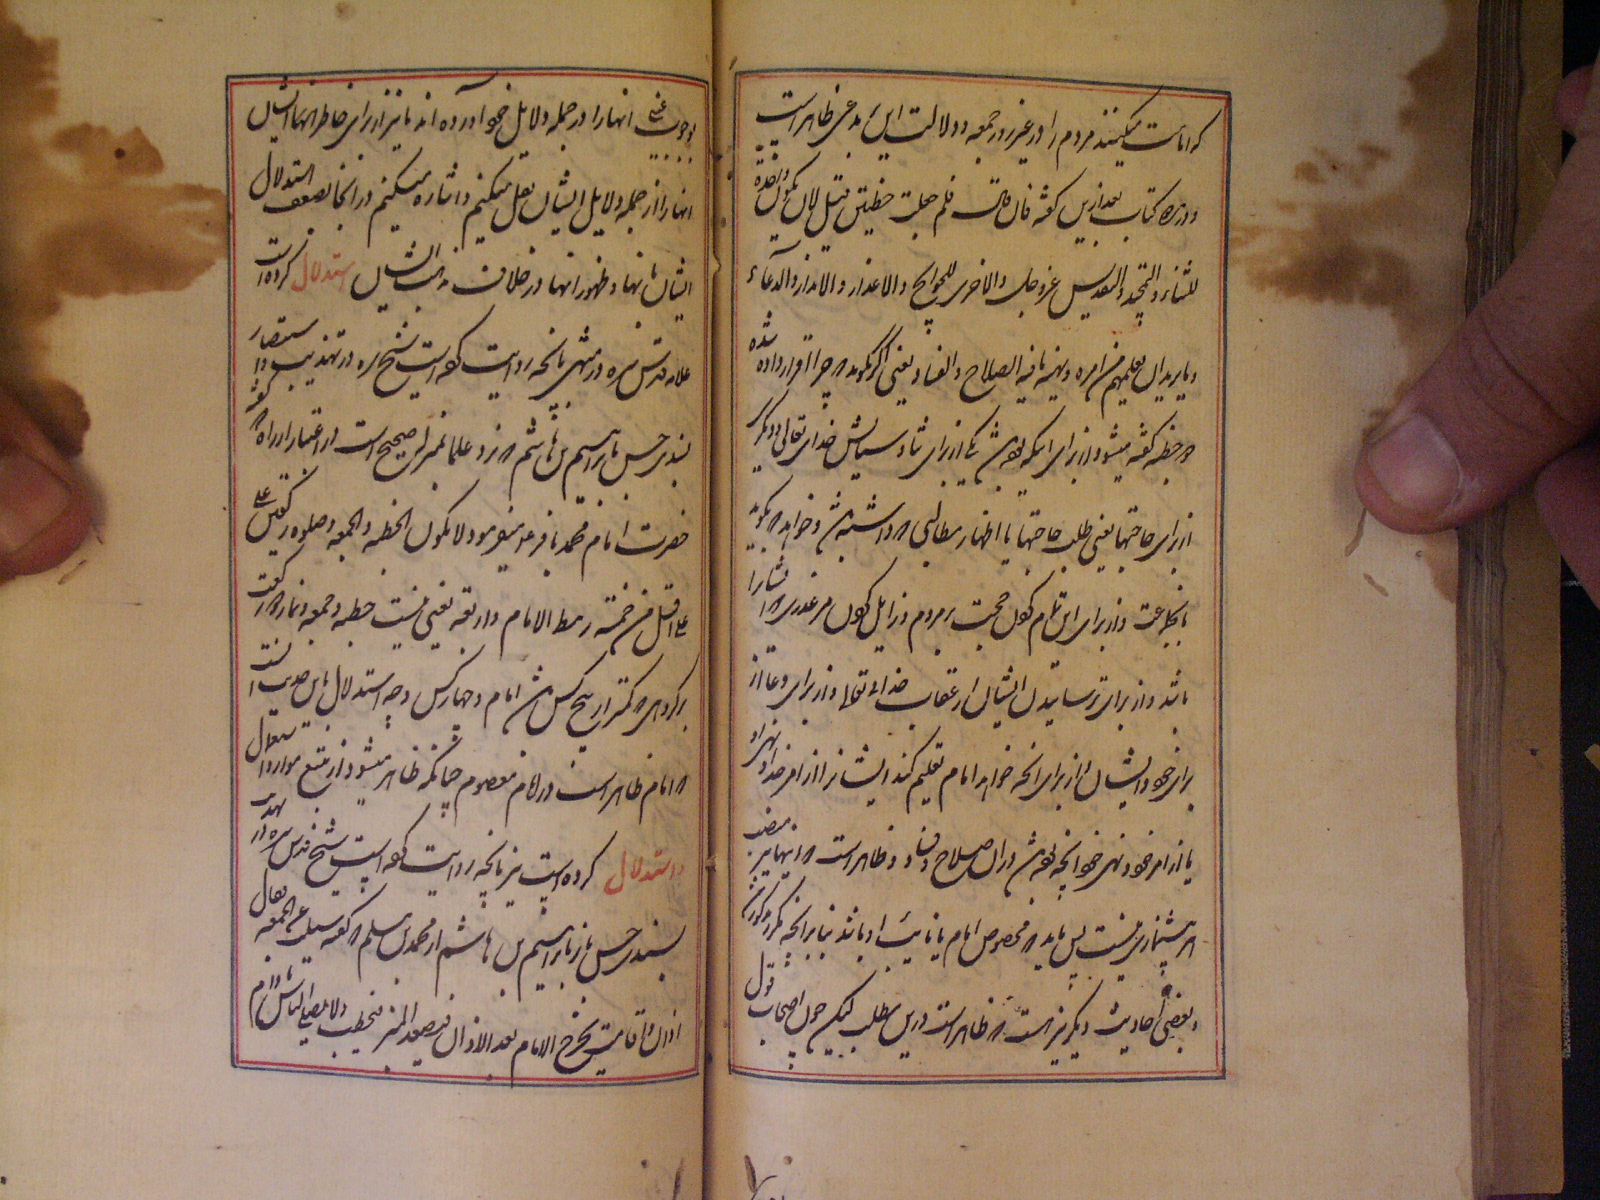 که امامت میکنند مردم را در غیر روز جمعه و دلالت این بر مدعی ظاهر است
و در کتاب بعد ازین گفته فان قال فلم جعلت خطبتین قیل لان یکون واحدة
للثناء و التمجید و التقدیس لله عز و جل و الاخری للحوایج و الاعذار و الانذار و الدعاء
و ما یرید ان یعلمهم من امره و نهیه ما فیه الصلاح و الفساد یعنی اگر بگویند چرا قرار داده شده
دو خطبه گفته میشود از برای اینکه بوده باشد یکی از برای ثنا و ستایش خدای تعالی و دیگری
از برای حاجتها یعنی طلب حاجتها یا اظهار مطالبی که داشته باشد و خواهد که بگوید
و از برای اتمام کردن حجت بر مردم و زایل کردن هر عذری که ایشان را
باشد و از برای ترسانیدن ایشان از عقاب خدای تعالی و از برای دعا از
برای خود و ایشان و از برای آنچه خواهد امام تعلیم کند ایشان را از امر خدا و نهی او
یا از امر خود و نهی خود آنچه بوده باشد در آن صلاح و فساد و ظاهر است که اینها منصب
هر پیشنمازی نیست پس باید که مخصوص امام یا نایب او باشد بنابر آنچه مذکور شد
و بعضی احادیث دیگر نیز هست که ظاهر است درین مطلب لیکن چون اصحاب قول
بوجوب عینی انها را در جمله دلایل خود آورده اند ما نیز از برای خاطر ایشان
انها را از جمله دلایل ایشان نقل میکنیم و اشاره میکنیم در انجا بضعف استدلال
ایشان بانها و ظهور انها در خلاف مذهب ایشان استدلال کرده است
علامه قدس سره در منتهی بانچه روایت کرده است شیخ ره در تهذیب و استبصار
بسندی حسن بابراهیم بن هاشم که نزد علما بمنزله صحیح است در اعتبار از زراره که گفته
حضرت امام محمد باقر ع میفرمود لا یکون الخطبه و الجمعه و صلوة رکعتین علی
اقل من خمسة رهط الامام و اربعه یعنی نیست خطبه و جمعه و نماز دو رکعت
بر گروهی که کمتر از پنج کس باشند امام و چهار کس وجه استدلال باین حدیث انست
که امام ظاهر است در امام معصوم چنانکه ظاهر میشود از تتبع موارد استعمال
و استدلال کرده است نیز بانچه روایت کرده است شیخ قدس سره در تهذیب
بسندی حسن باز بابراهیم بن هاشم از محمد بن مسلم که گفته سالته عن الجمعه فقال
اذان و اقامة یخرج الامام بعد الاذان فیصعد المنبر فیخطب و لا یصلی الناس ما دام